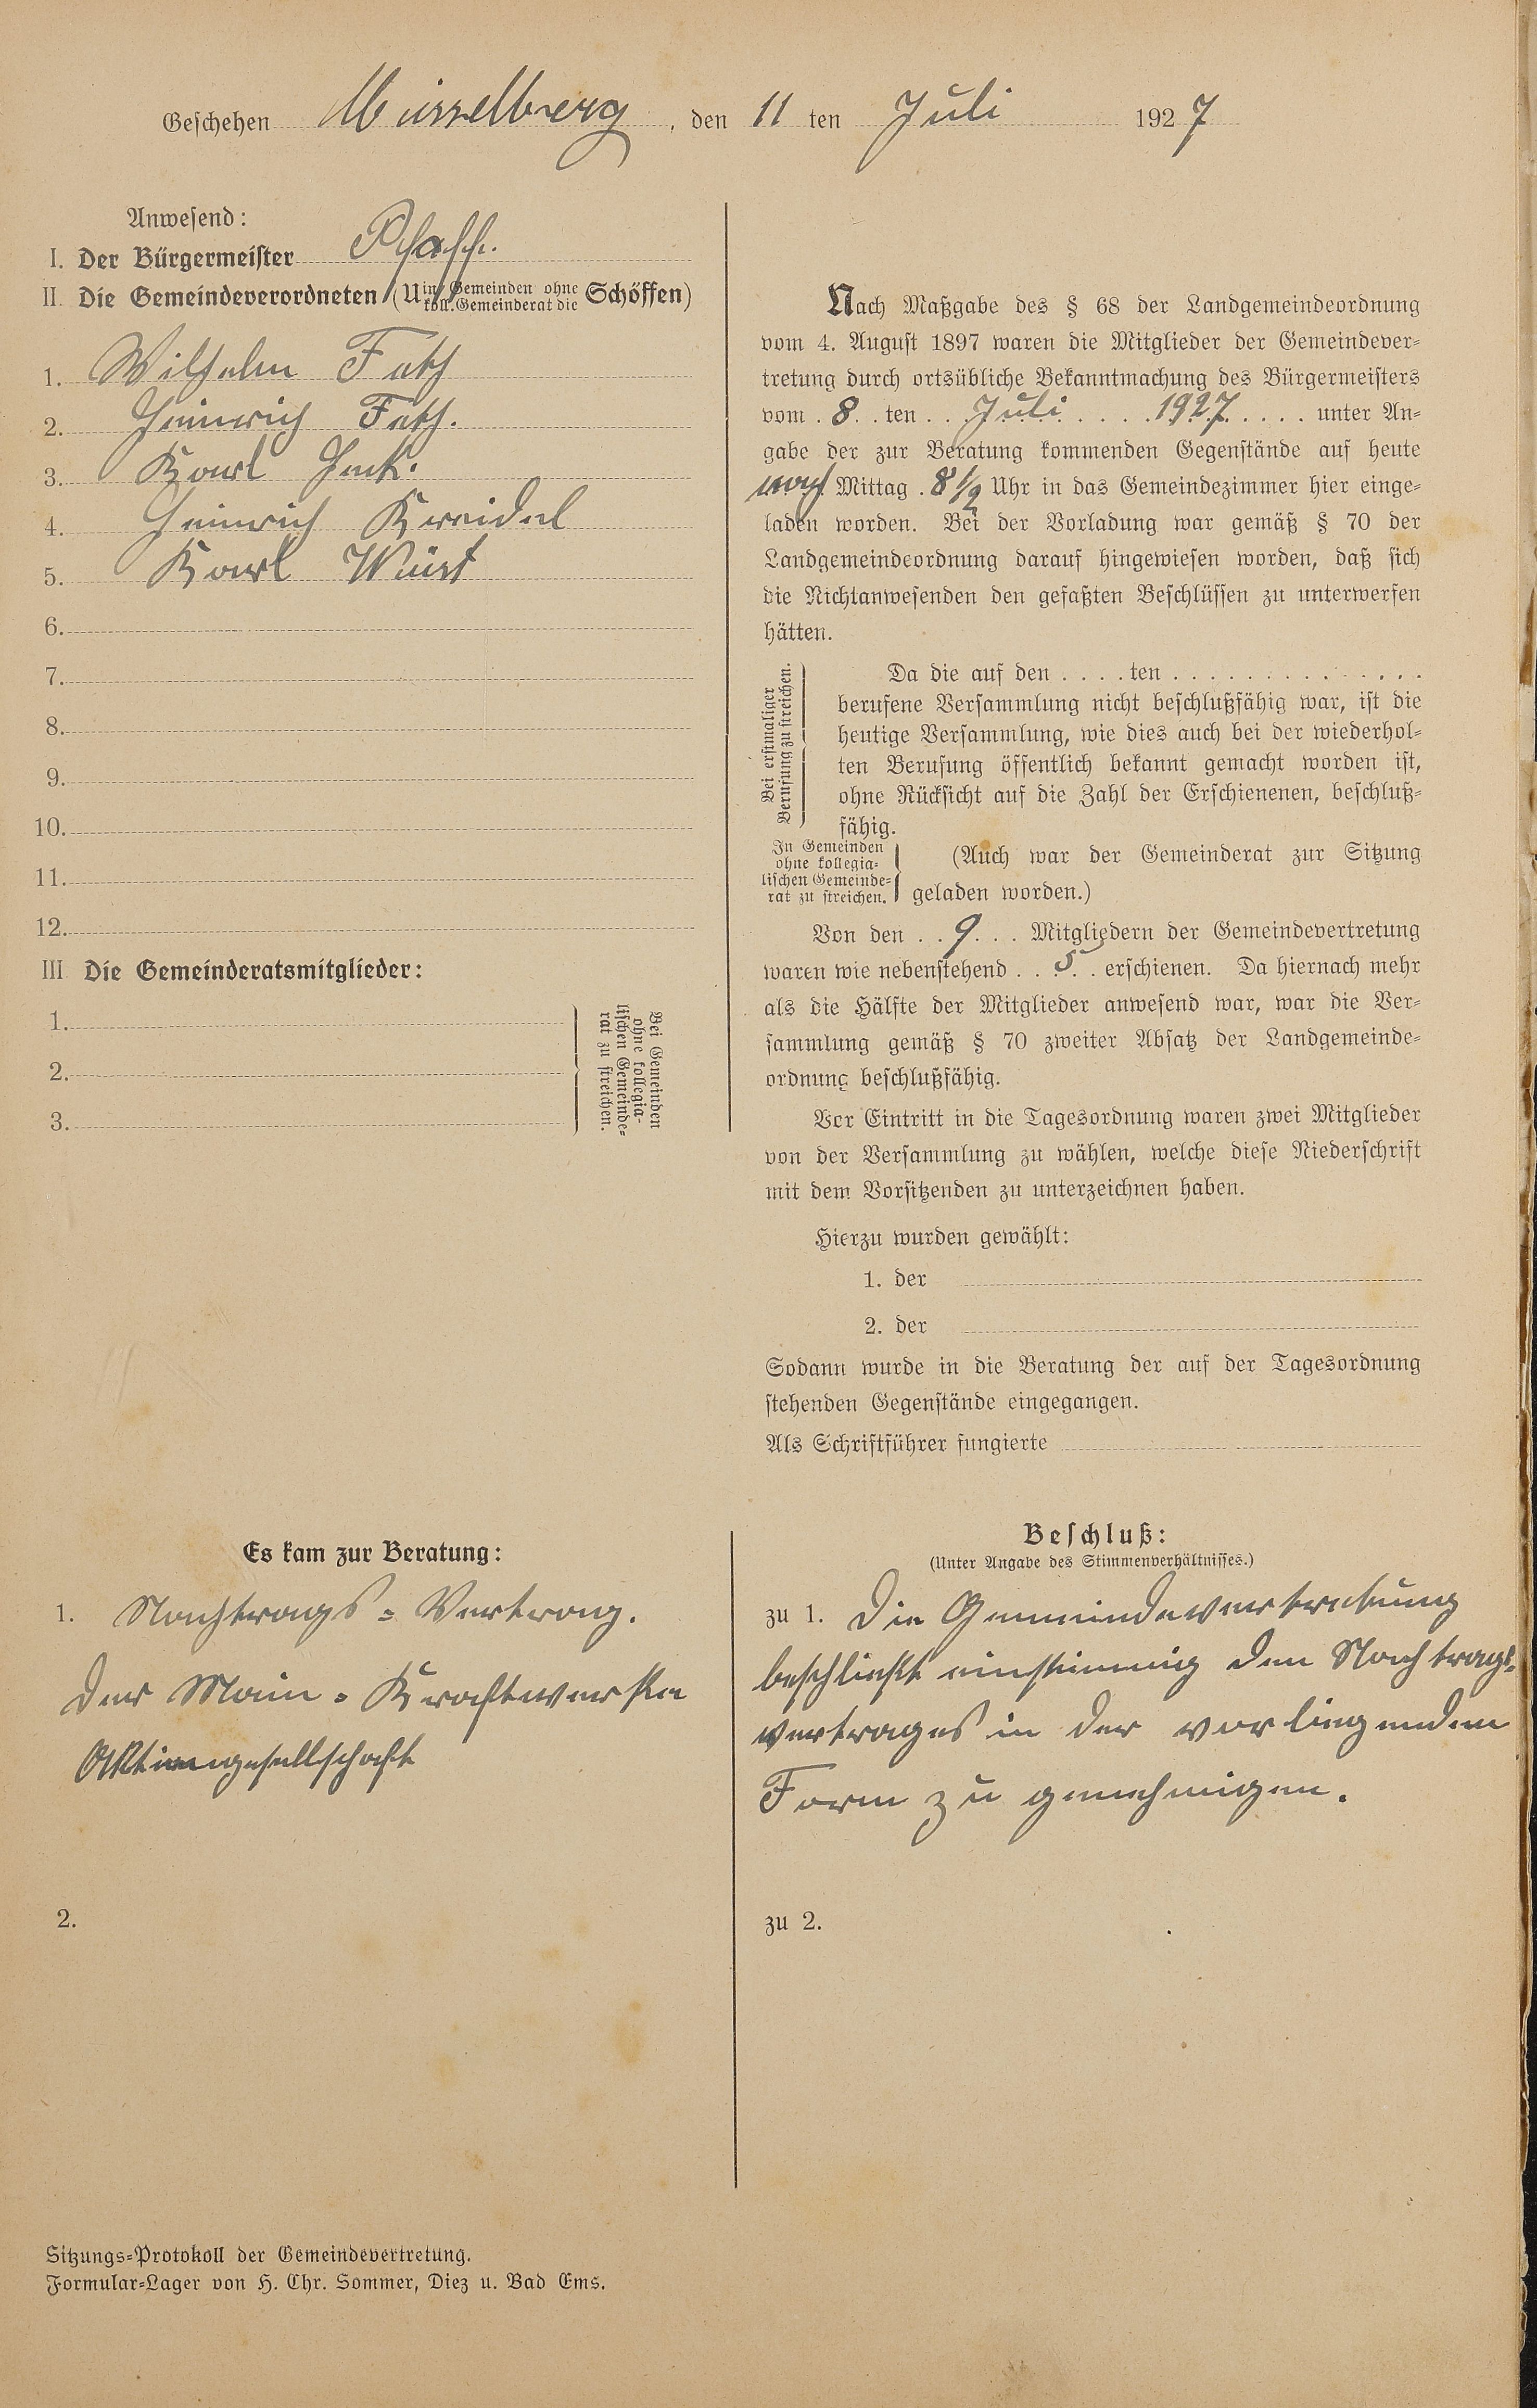 Geschehen Müsselberg, den 11 ten Juli 1927
Anwesend:
I. Der Bürgermeister Pfaff.
II. Die Gemeindeverordneten (U in Gemeinden ohne koll. Gemeinderat die Schöffen)
1. Wilhelm Feth
2. Heinrich Feth.
3. Karl
4. Heinrich Kreidel
5. Karl Würt
6.
7.
8.
9.
10.
11.
12.
III Die Gemeinderatsmitglieder:
1.
2.
3.
Bei Gemeinden
ohne kollegia-
lischen Gemeinde-
rat zu streichen.
Nach Maßgabe des § 68 der Landgemeindeordnung
vom 4. August 1897 waren die Mitglieder der Gemeindever-
tretung durch ortsübliche Bekanntmachung des Bürgermeisters
vom . 8 . . ten . . Juli . . . . 1927 . . . . unter An-
gabe der zur Beratung kommenden Gegenstände auf heute
nach Mittag . 8 1/2 Uhr in das Gemeindezimmer hier einge-
laden worden. Bei der Vorladung war gemäß § 70 der
Landgemeindeordnung darauf hingewiesen worden, daß sich
die Nichtanwesenden den gefaßten Beschlüssen zu unterwerfen
hätten.
Bei erstmaliger
Berufung zu streichen.
Da die auf den . . . . ten . . . . . . . . . . . . . .
berufene Versammlung nicht beschlußfähig war, ist die
heutige Versammlung, wie dies auch bei der wiederhol-
ten Berufung öffentlich bekannt gemacht worden ist,
ohne Rücksicht auf die Zahl der Erschienenen, beschluß-
fähig.
In Gemeinden
ohne kollegia-
lischen Gemeinde-
rat zu streichen.
(Auch war der Gemeinderat zur Sitzung
geladen worden.)
Von den . . 9 . . . Mitgliedern der Gemeindevertretung
waren wie nebenstehend . . 5 . . erschienen. Da hiernach mehr
als die Hälfte der Mitglieder anwesend war, war die Ver-
sammlung gemäß § 70 zweiter Absatz der Landgemeinde-
ordnung beschlußfähig.
Vor Eintritt in die Tagesordnung waren zwei Mitglieder
von der Versammlung zu wählen, welche diese Niederschrift
mit dem Vorsitzenden zu unterzeichnen haben.
Hierzu wurden gewählt:
1. der
2. der
Sodann wurde in die Beratung der auf der Tagesordnung
stehenden Gegenstände eingegangen.
Als Schriftführer fungierte
Es kam zur Beratung:
1. Nachtrags-Vertrag.
der Main-Kraftwerke
Aktiengesellschaft
2.
Beschluß:
(Unter Angabe des Stimmenverhältnisses.)
zu 1. Die Gemeindevertretung
beschließt einstimmig den Nachtrags-
vertrages in der vorliegenden
Form zu genehmigen.
zu 2.
Sitzungs-Protokoll der Gemeindevertretung.
Formular-Lager von H. Chr. Sommer, Diez u. Bad Ems.